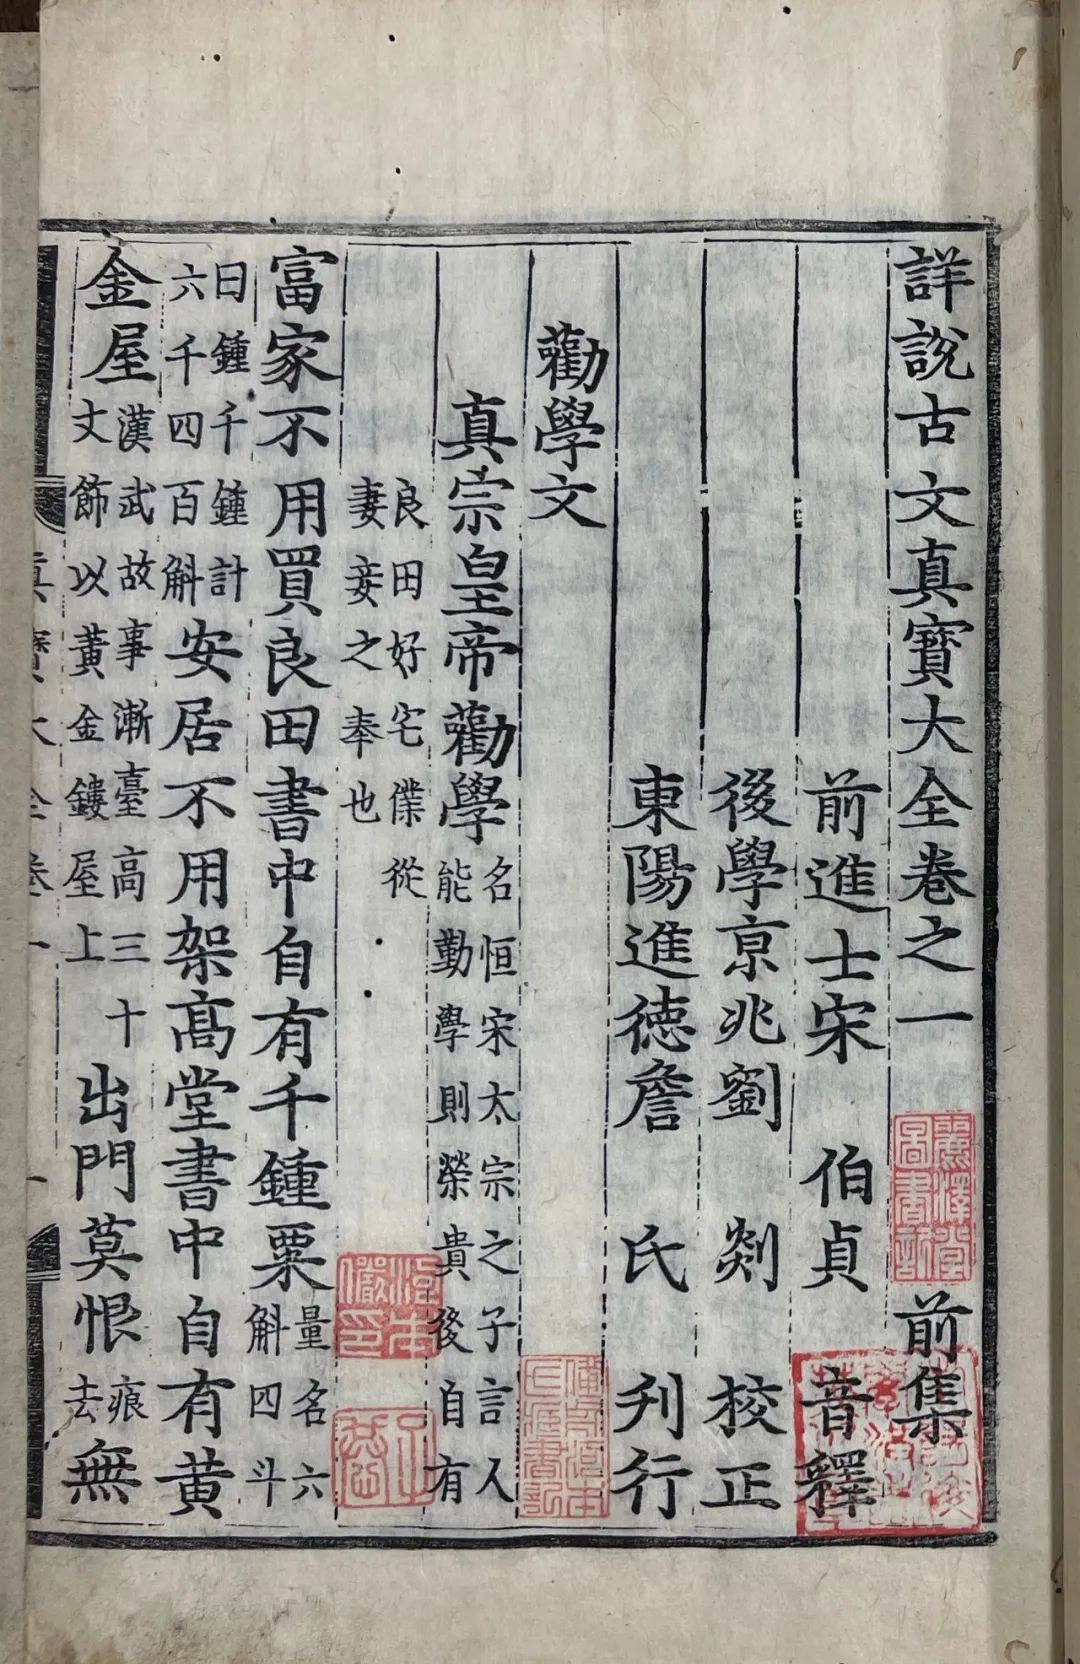 詳說古文真寶大全卷之一 前集
前進士宋 伯貞 音釋
後學京兆劉 剡 校正
東陽進德詹 氏 刋行
勸學文
真宗皇帝勸學名恒宋太宗之子言人能勤學則榮貴後自有
良田好宅僕從妻妾之奉也
富家不用買良田書中自有千鍾粟量名六斛四斗
曰鍾千鍾計六千四百斛安居不用架高堂書中自有黄
金屋漢武故事漸臺高三十文飾以黄金鏤屋上出門莫恨痕去無
真寶大全卷一 一
麗澤堂圖書記